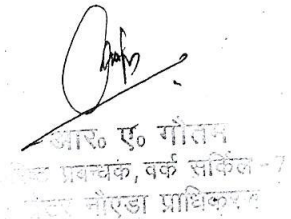 आर० ए० गौतम
प्रबन्धक, वर्क सर्किल - 7
नौएडा प्राधिकरण